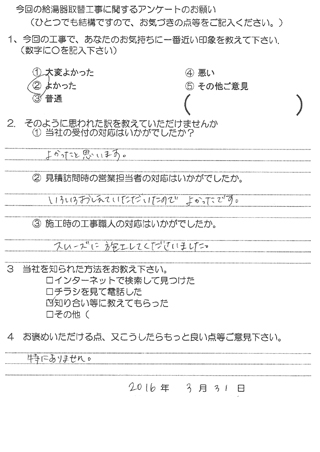 今回の給湯器取替工事に関するアンケートのお願い
(ひとつでも結構ですので、お気づきの点等をご記入ください。)
1、今回の工事で、あなたのお気持ちに一番近い印象を教えて下さい.
(数字に○を記入下さい)
① 大変よかった ④ 悪い
② よかった ⑤ その他ご意見
③ 普通 ( )
2. そのように思われた訳を教えていただけませんか
① 当社の受付の対応はいかがでしたか?
よかったと思います。
② 見積訪問時の営業担当者の対応はいかがでしたか。
いろいろおしえていただいたので よかったです。
③ 施工時の工事職人の対応はいかがでしたか。
スムーズに施工してくださいました。
3 当社を知られた方法をお教え下さい。
□インターネットで検索して見つけた
□チラシを見て電話した
☑知り合い等に教えてもらった
□その他(
4 お褒めいただける点、又こうしたらもっと良い点等ご意見下さい。
特にありません。
2016 年 3 月 31 日